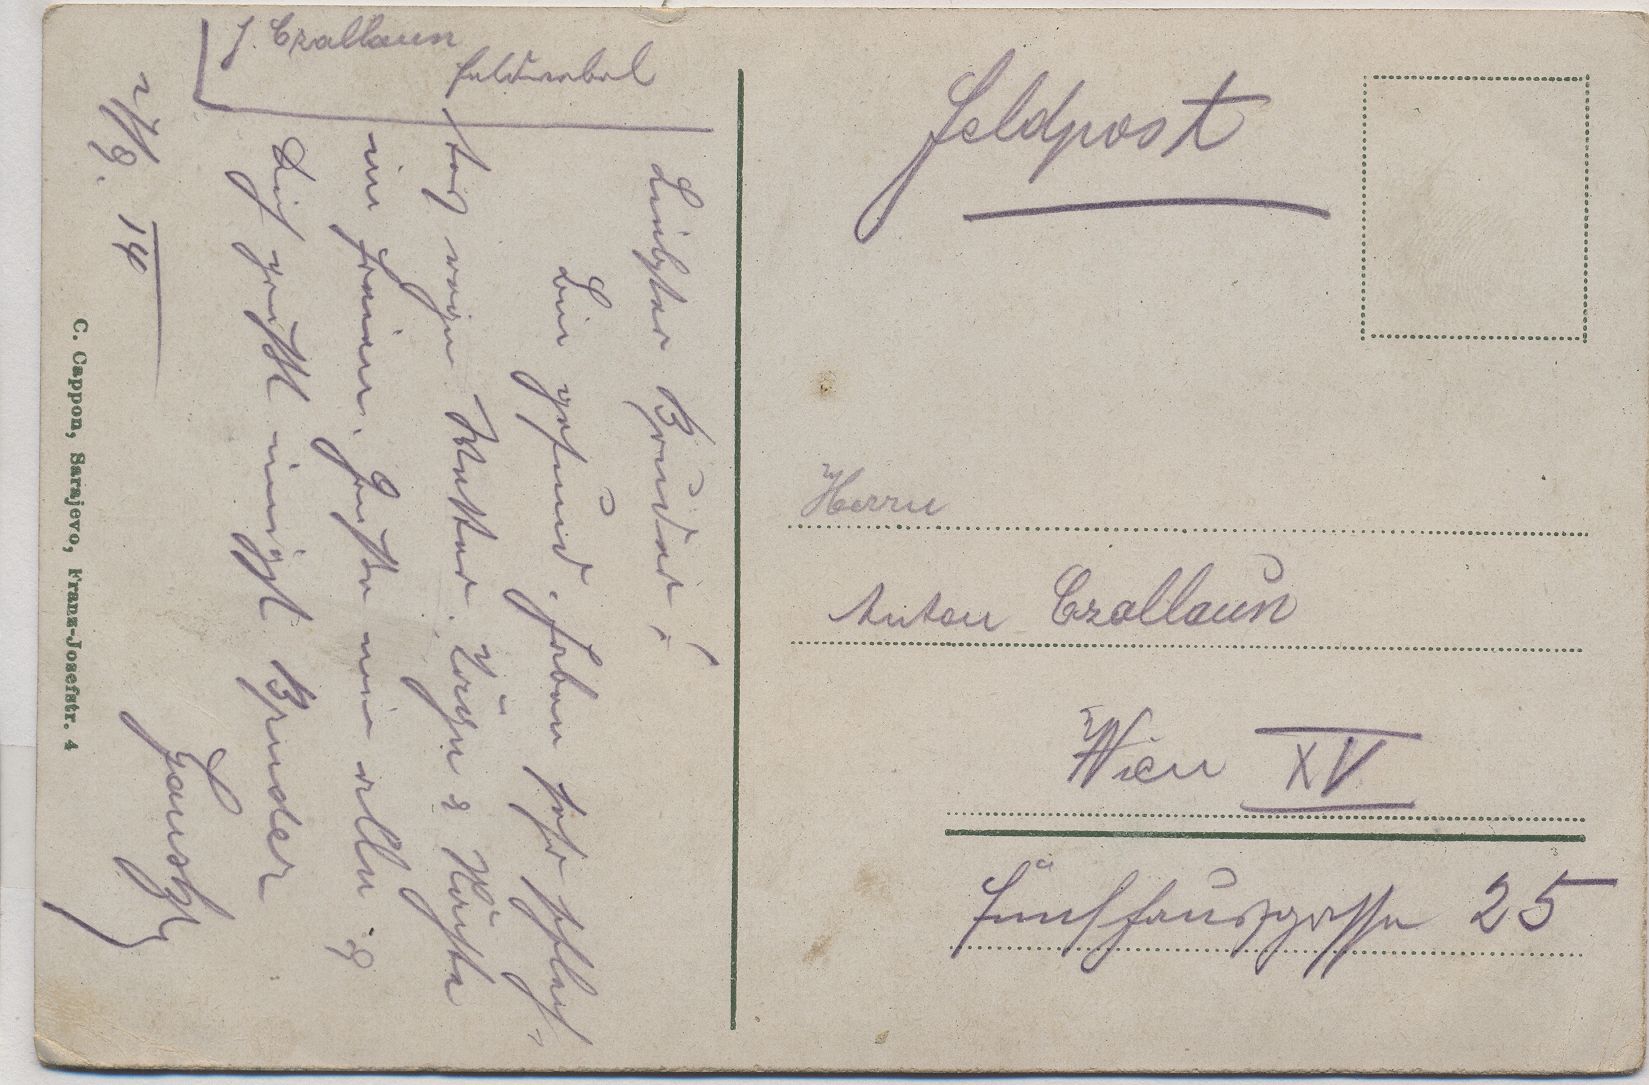 J. Czallaun
Feldwebel
Liebster Bruder!
Bin gesund. Haben sehr schlech-
tes Wetter. Regen & Nächte
im Freien. Grüße mir alle &
Dich grüßt innigst Bruder
2/9. 14
C. Cappon, Sarajevo, Franz-Josefstr. 4
Feldpost
Herrn
Anton Czallaun
Wien XV
Fünfhausgasse 25